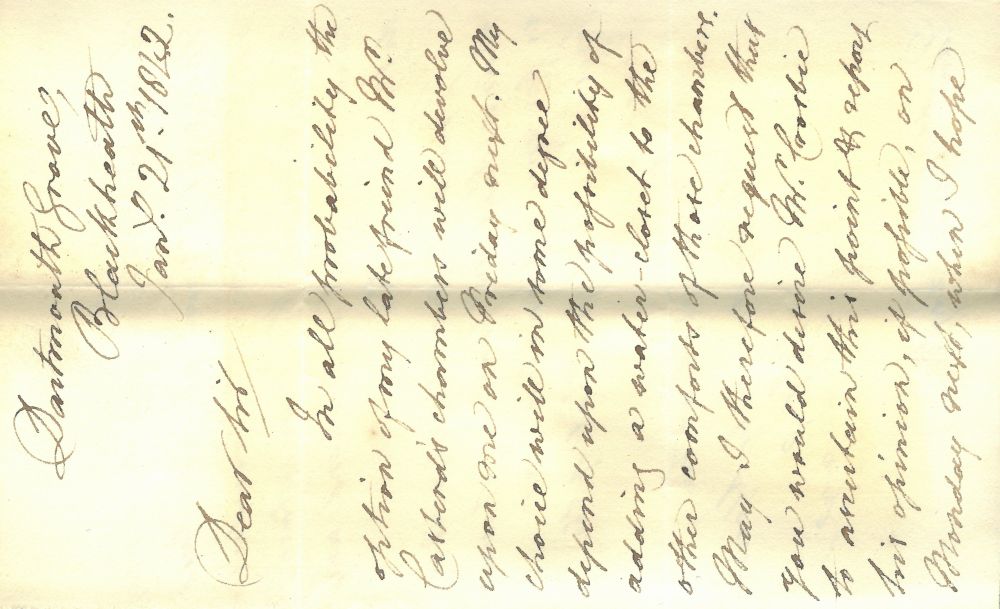 Dartmouth Grove,
Blackheath
Jany. 21st. 1842.
Dear Sir
In all probability the
option of my late friend Mr.
Casterd's chambers will devolve
upon me on Friday next. My
choice will in some degree
depend upon the possibility of
adding a water-closet to the
other comforts of those chambers.
May I therefore request that
you would desire Mr.
to ascertain this point & report
his opinion, if possible, on
Monday next, when I hope